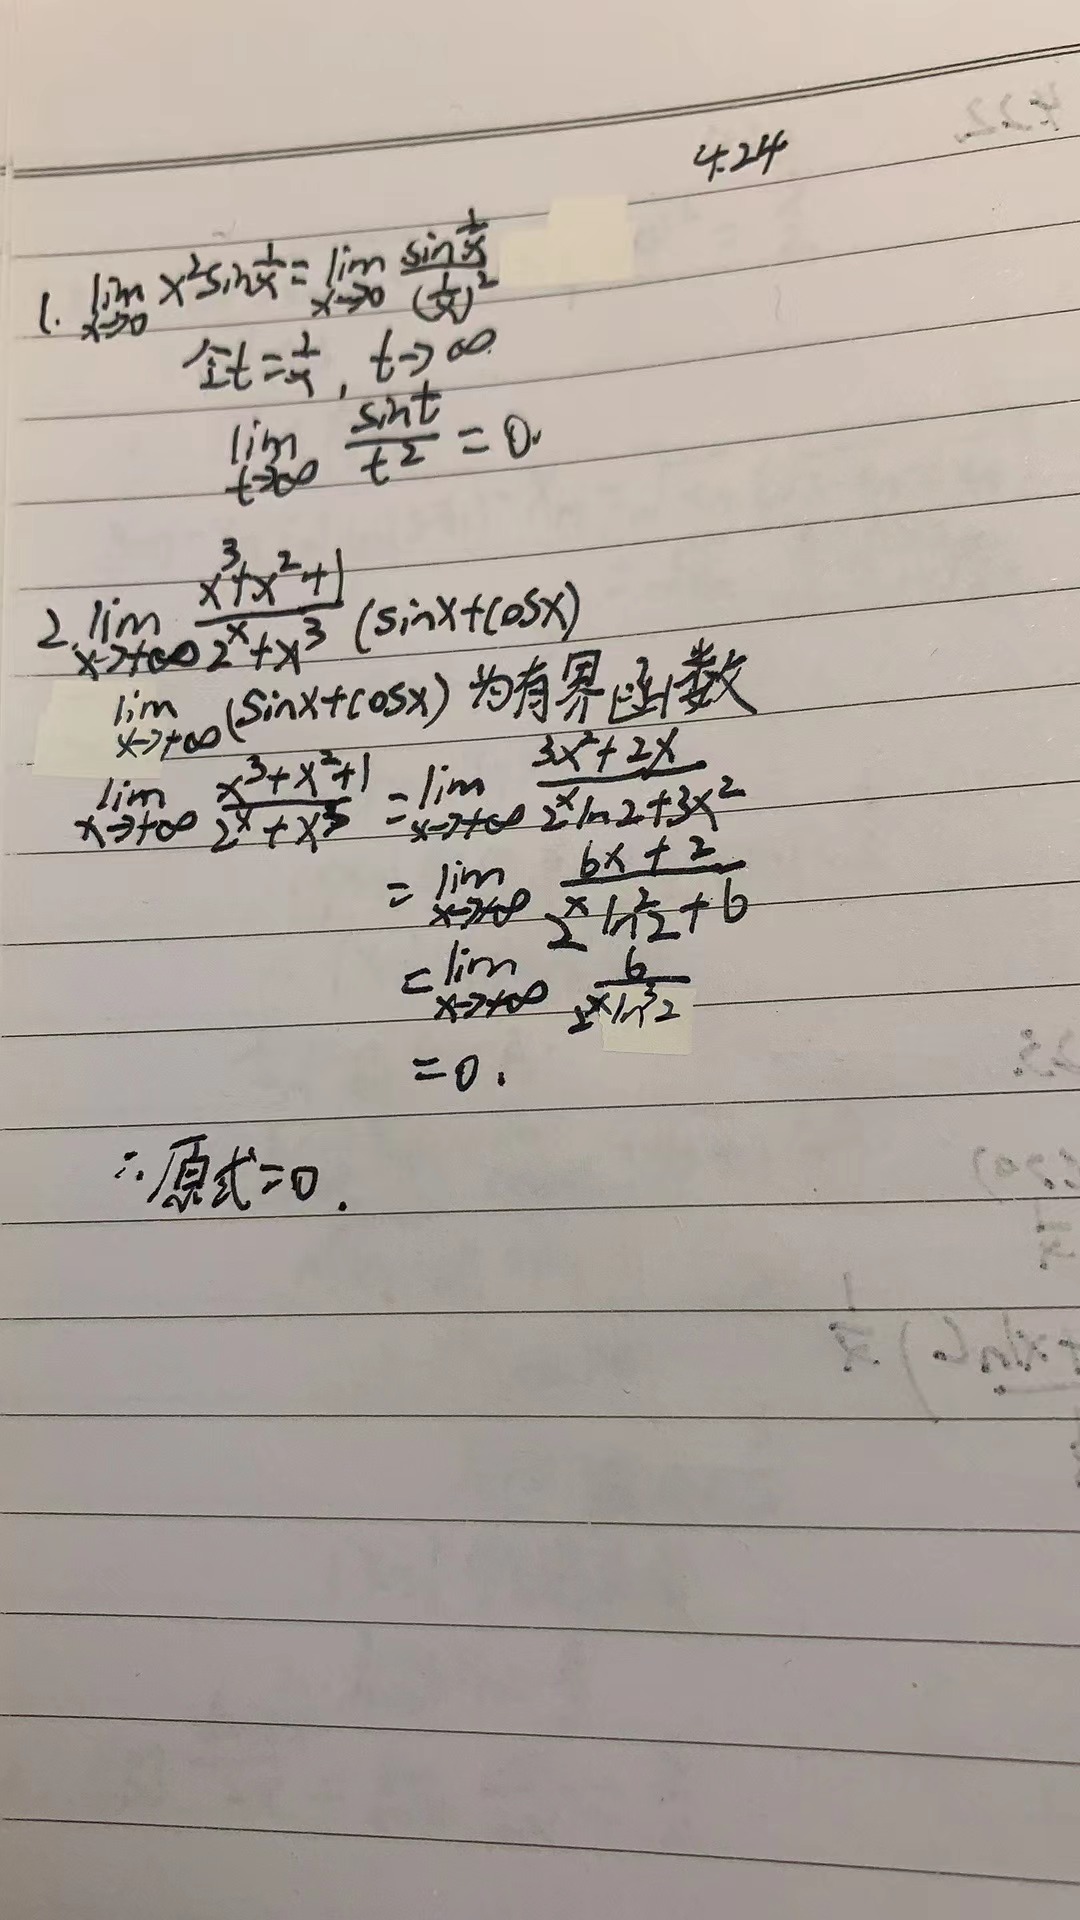 4.24
1. lim x→0 x²sin 1/x = lim x→0 sin 1/x / (1/x)²
令t = 1/x , t→∞
lim t→∞ sint / t² = 0.
2. lim x→+∞ (x³+x²+1)/(2ˣ+x³) (sinx+cosx)
lim x→+∞ (sinx+cosx) 为有界函数
lim x→+∞ (x³+x²+1)/(2ˣ+x³) = lim x→+∞ (3x²+2x)/(2ˣln2+3x²)
= lim x→+∞ (6x+2)/(2ˣln²2+6)
= lim x→+∞ 6/(2ˣln³2)
=0.
∴原式=0.